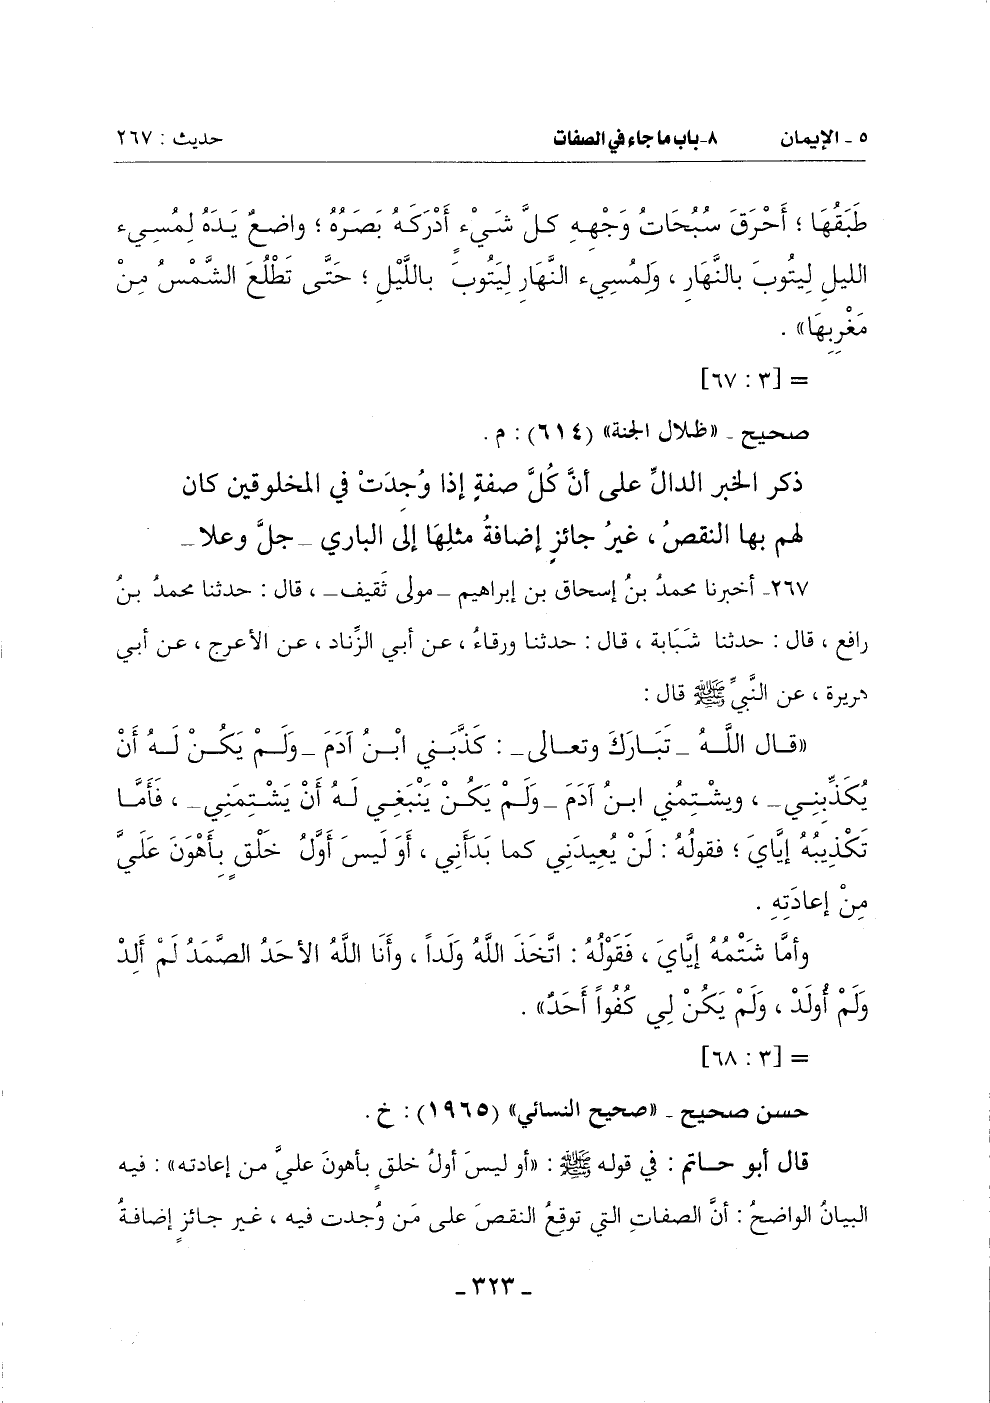 ٥ ـ الإيمان ٨ـ باب ما جاء في الصفات حديث : ٢٦٧
طَبَقُهَا ؛ أَحْرَقَ سُبُحَاتُ وَجْهِهِ كلَّ شَيْءٍ أَدْرَكَهُ بَصَرُهُ ؛ واضعٌ يَدَهُ لِمُسِيء
الليلِ لِيَتُوبَ بالنَّهَارِ ، وَلِمُسِيء النَّهَارِ لِيَتُوبَ باللَّيْلِ ؛ حَتَّى تَطْلُعَ الشَّمْسُ مِنْ
مَغْرِبِهَا» .
= [٣ : ٦٧]
صحيح ـ «ظلال الجنة» (٦١٤) : م .
ذكر الخبر الدالِّ على أنَّ كُلَّ صفةٍ إذا وُجِدَتْ في المخلوقين كان
لهم بها النقصُ ، غيرُ جائزٍ إضافةُ مثلِهَا إلى الباري ـ جلَّ وعلا ـ
٢٦٧ـ أخبرنا محمدُ بنُ إسحاق بن إبراهيم ـ مولى ثَقيف ـ ، قال : حدثنا محمدُ بنُ
رافع ، قال : حدثنا شَبَابة ، قال : حدثنا ورقاءُ ، عن أبي الزِّناد ، عن الأعرج ، عن أبي
هريرة ، عن النَّبيِّ ﷺ قال :
«قـال اللَّـهُ ـ تَبَـارَكَ وتعـالى ـ : كَذَّبَـني ابْـنُ آدَمَ ـ ولَـمْ يَكُـنْ لَـهُ أَنْ
يُكَذِّبنِـي ـ ، ويشْـتِمُني ابـنُ آدَمَ ـ ولَـمْ يَكُـنْ يَنْبَغِـي لَـهُ أَنْ يَشْـتِمَني ـ ، فَأَمَّـا
تَكْذِيبُهُ إيَّايَ ؛ فقولُهُ : لَنْ يُعِيدَنِي كما بَدَأَني ، أَوَ لَيسَ أَوَّلُ خَلْقٍ بِأَهْوَنَ عَلَيَّ
مِنْ إعادَتِهِ .
وأمَّا شَتْمُهُ إيَّايَ ، فَقَوْلُهُ : اتَّخَذَ اللَّهُ وَلَداً ، وأَنَا اللَّهُ الأحَدُ الصَّمَدُ لَمْ أَلِدْ
وَلَمْ أُولَدْ ، وَلَمْ يَكُنْ لِي كُفُواً أَحَدٌ» .
= [٣ : ٦٨]
حسن صحيح ـ «صحيح النسائي» (١٩٦٥) : خ .
قال أبو حـاتم : في قولـه ﷺ : «أو ليـسَ أولُ خلقٍ بـأهونَ علـيَّ مـن إعادته» : فيه
البيانُ الواضحُ : أنَّ الصفاتِ التي توقعُ النقصَ على مَن وُجدت فيه ، غير جائزٍ إضافةُ
ـ ٣٢٣ ـ